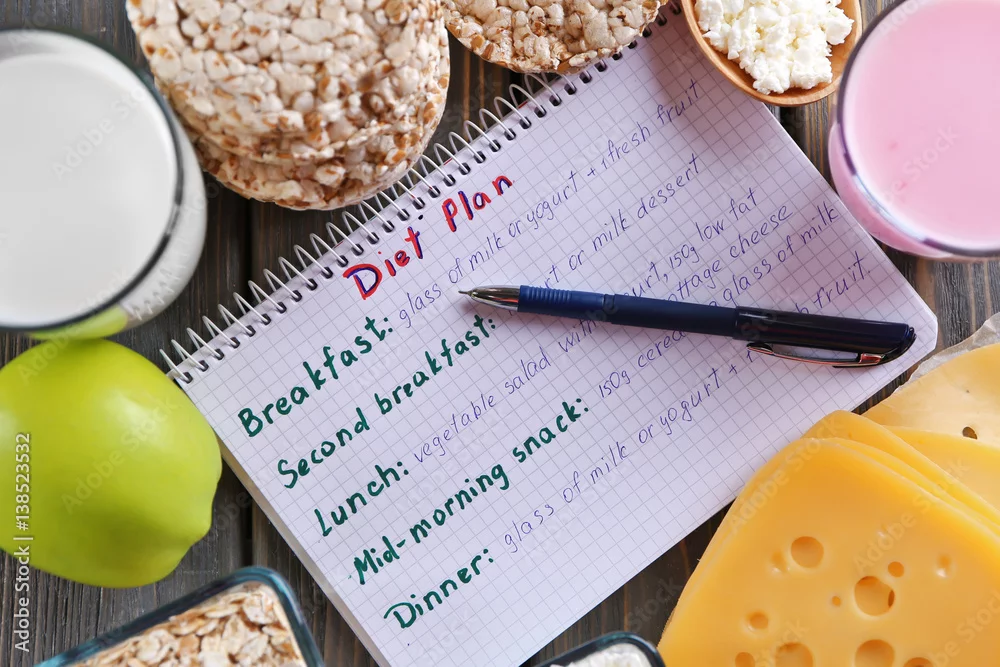 Diet Plan
Breakfast: glass of milk or yogurt + 1 fresh fruit
Second breakfast: or milk dessert
Lunch: vegetable salad with 150g low fat cottage cheese
Mid-morning snack: 150g glass of milk
Dinner: glass of milk or yogurt + fruit.
Adobe Stock
138523532
© Adobe Stock